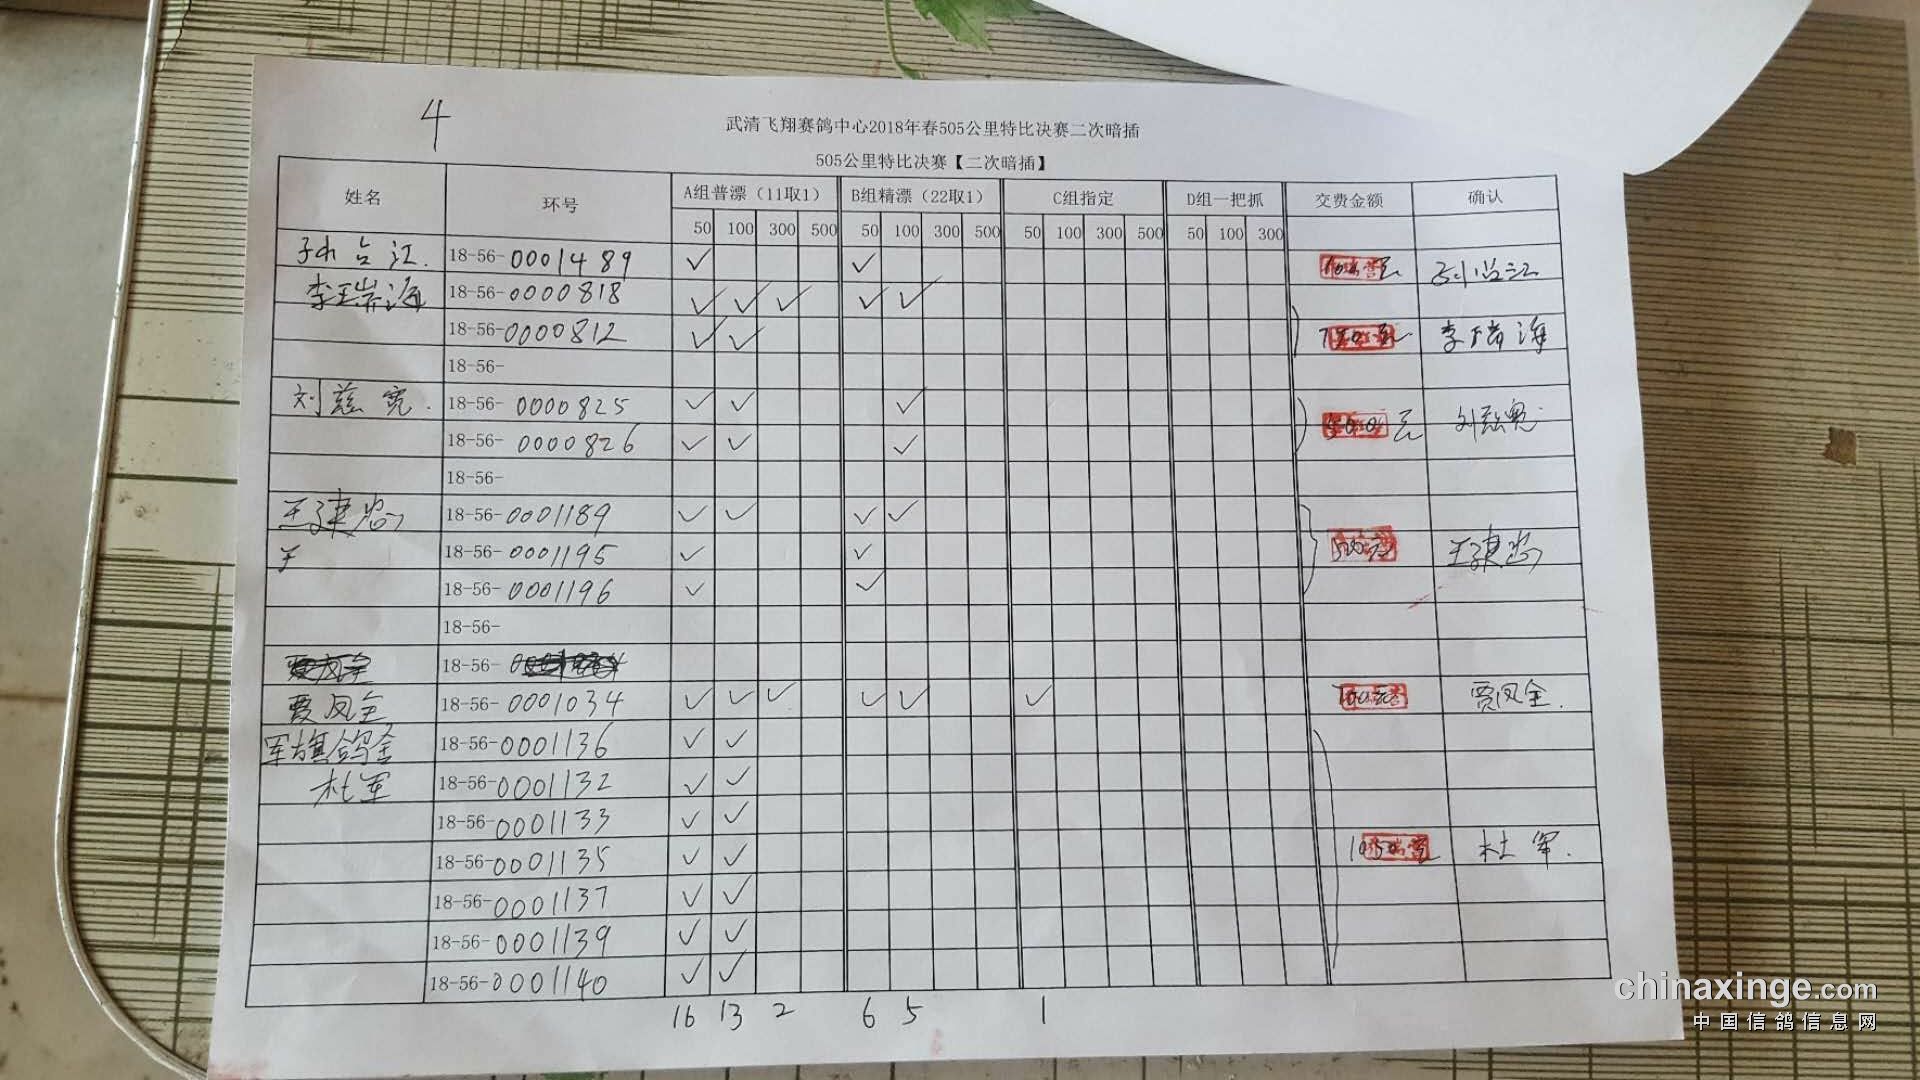 4
武清飞翔赛鸽中心2018年春505公里特比决赛二次暗插
505公里特比决赛【二次暗插】
姓名 环号 A组普漂（11取1） B组精漂（22取1） C组指定 D组一把抓 交费金额 确认
50 100 300 500 50 100 300 500 50 100 300 500 50 100 300
孙占江. 18-56-0001489 ✓ ✓
李瑞海 18-56-0000818 ✓ ✓ ✓ ✓ ✓
18-56-0000812 ✓ ✓ 李瑞海
18-56-
刘兹宽. 18-56-0000825 ✓ ✓ ✓
18-56-0000826 ✓ ✓ ✓ 元
18-56-
王建忠 18-56-0001189 ✓ ✓ ✓ ✓
18-56-0001195 ✓ ✓ 王建忠
18-56-0001196 ✓ ✓
18-56-
18-56-
贾凤全 18-56-0001034 ✓ ✓ ✓ ✓ ✓ ✓ 贾凤全.
军旗鸽舍 18-56-0001136 ✓ ✓
杜军 18-56-0001132 ✓ ✓
18-56-0001133 ✓ ✓
18-56-0001135 ✓ ✓ 1050元 杜军.
18-56-0001137 ✓ ✓
18-56-0001139 ✓ ✓
18-56-0001140 ✓ ✓
16 13 2 6 5 1
chinaxinge.com
中国信鸽信息网